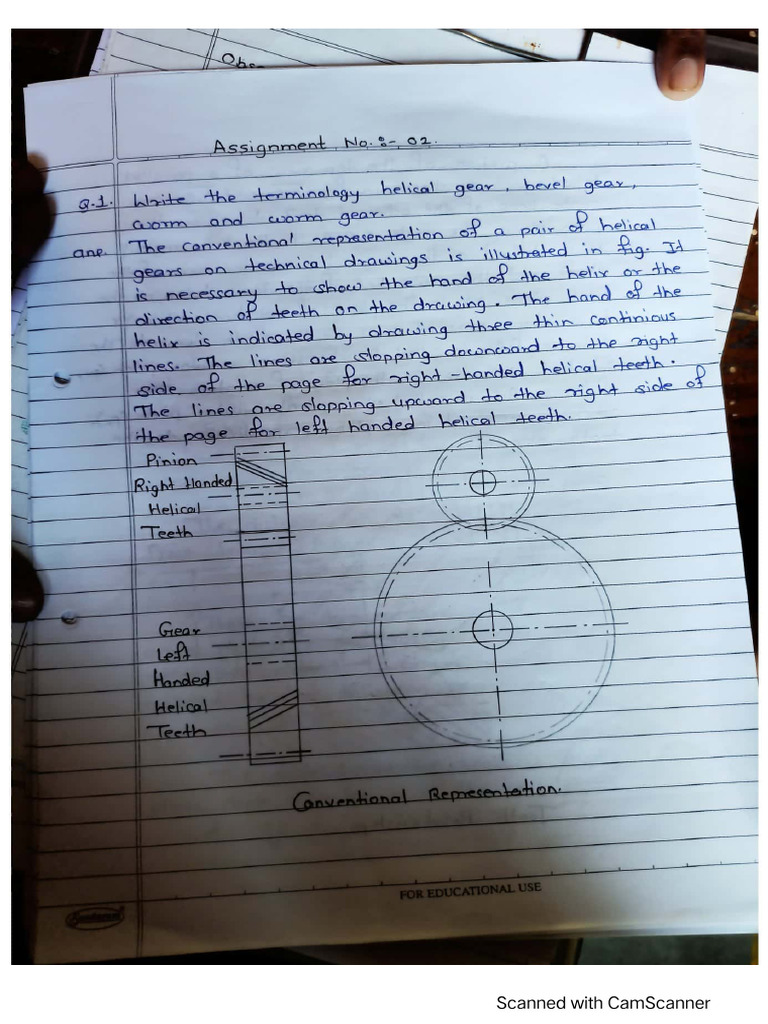 Obs
Assignment No.:- 02.
Q.1. Write the terminology helical gear, bevel gear,
worm and worm gear.
ans. The conventional representation of a pair of helical
gears on technical drawings is illustrated in fig. It
is necessary to show the hand of the helix or the
direction of teeth on the drawing. The hand of the
helix is indicated by drawing three thin continious
lines. The lines are slopping downward to the right
side of the page for right-handed helical teeth.
The lines are slopping upward to the right side of
the page for left handed helical teeth.
Pinion
Right Handed
Helical
Teeth
Gear
Left
Handed
Helical
Teeth
Conventional Representation.
FOR EDUCATIONAL USE
Sundaram
Scanned with CamScanner